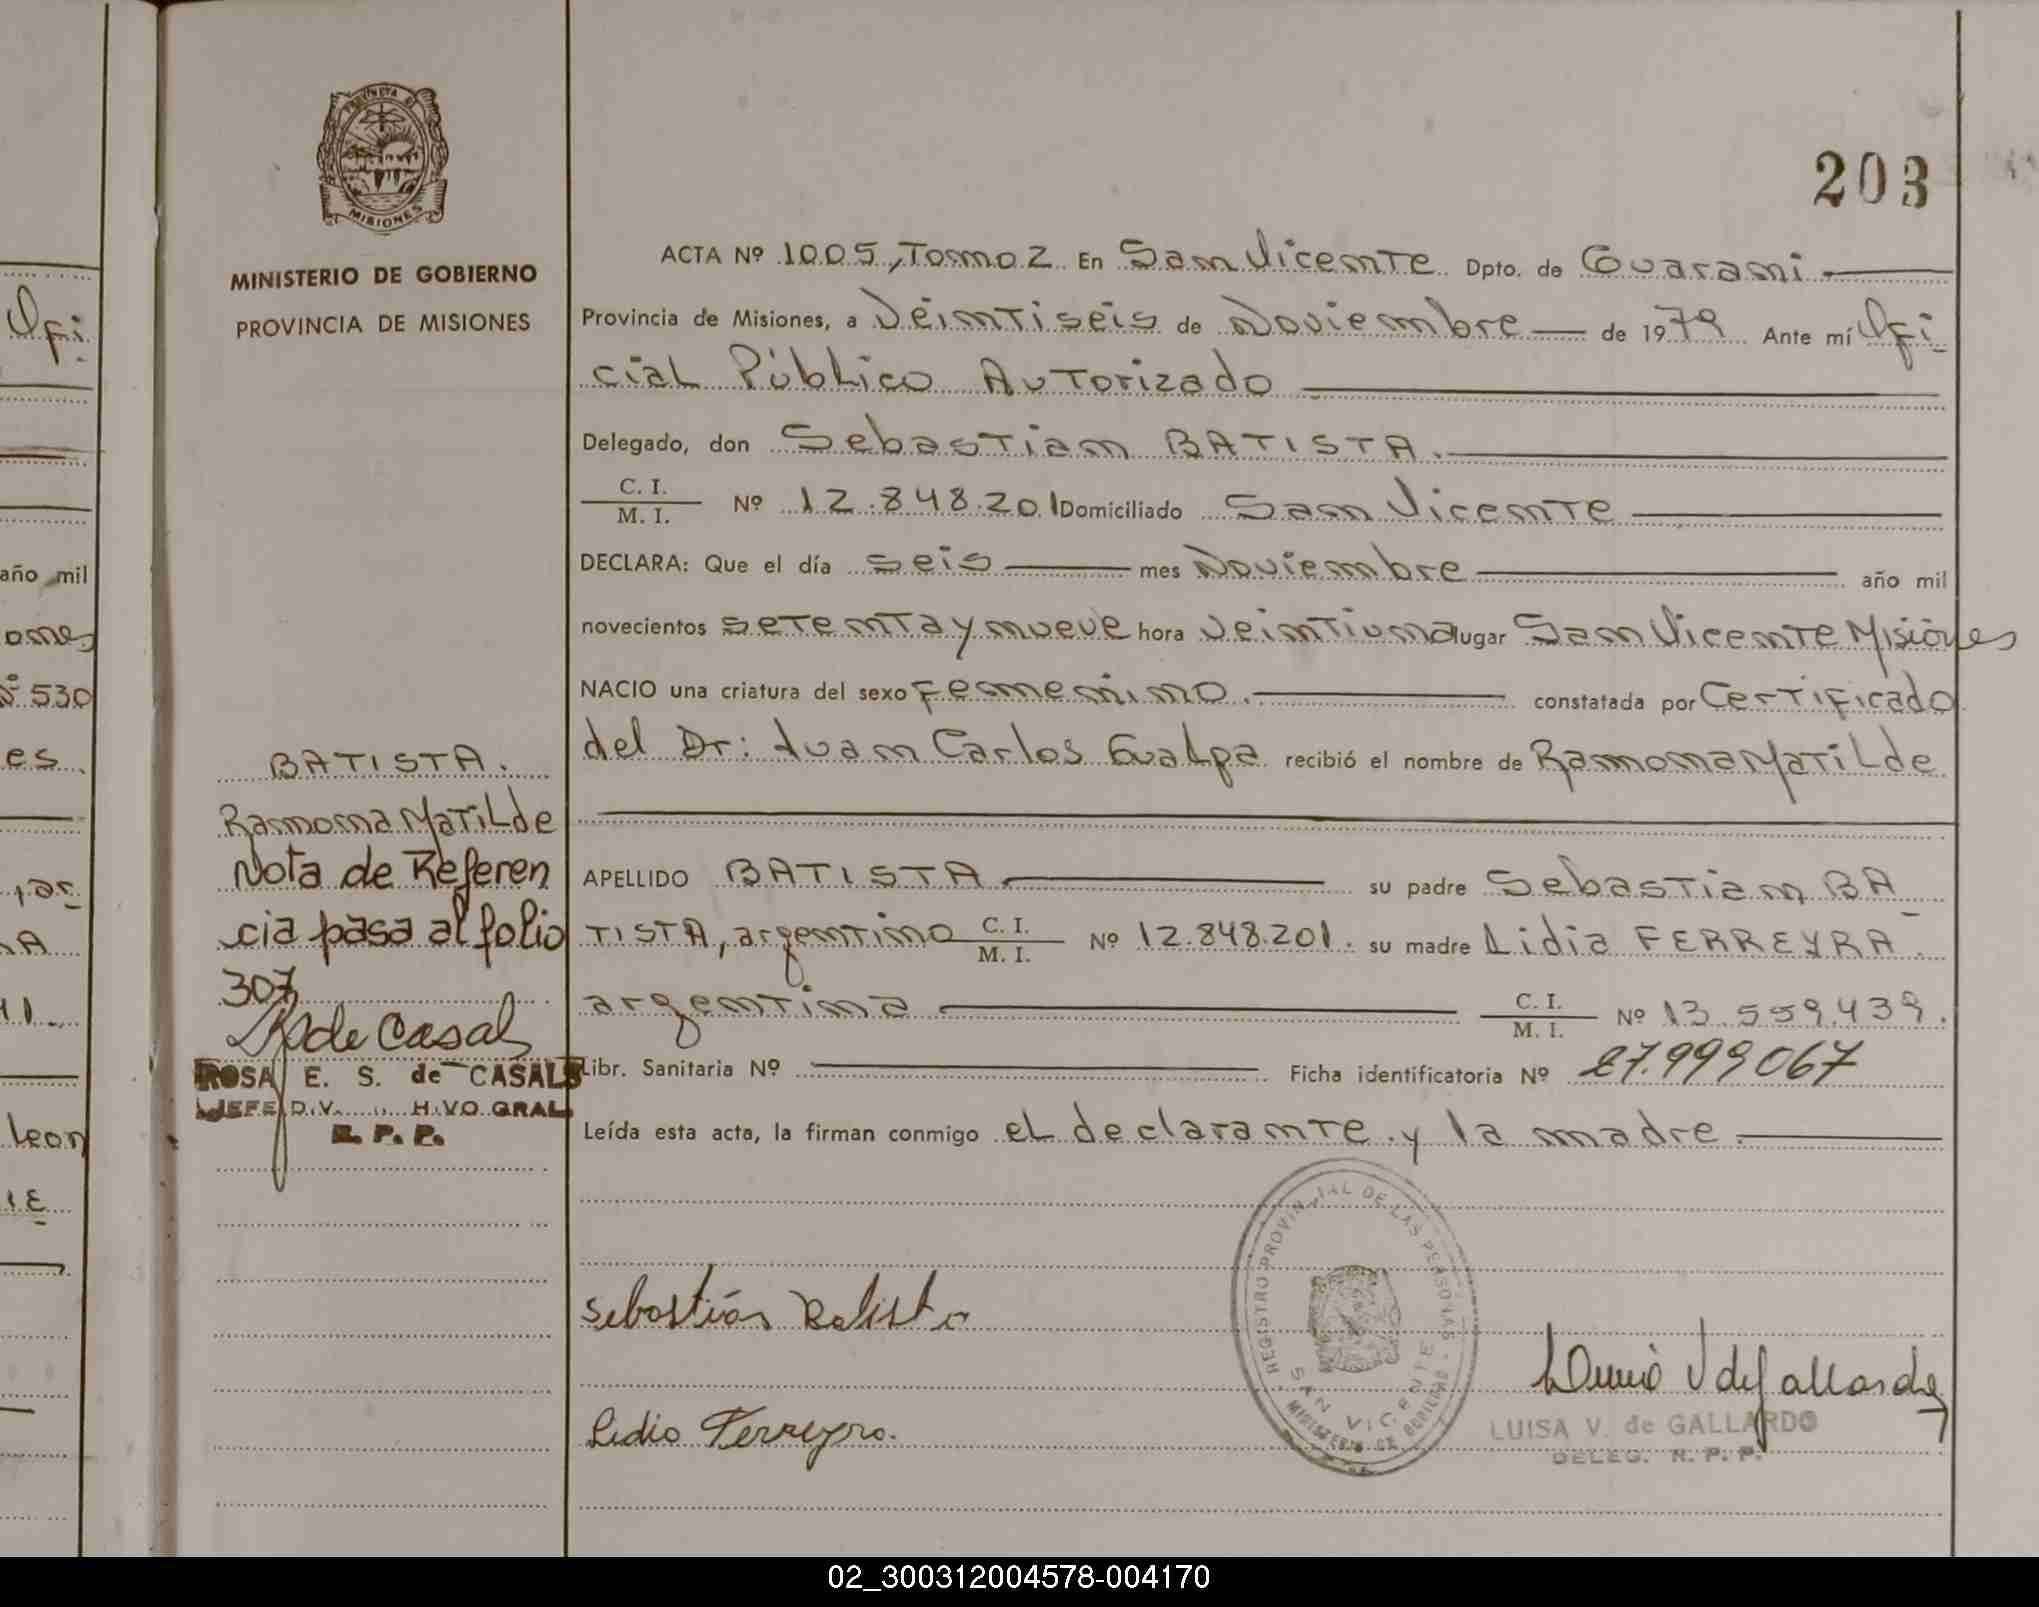 PROVINCIA DE
MISIONES
MINISTERIO DE GOBIERNO
PROVINCIA DE MISIONES
203
ACTA Nº 1005, Tomo 2 En San Vicente Dpto. de Guarani
Provincia de Misiones, a Veintiseis de Noviembre de 1979 Ante mí Ofi
cial Público Autorizado
Delegado, don Sebastian BATISTA.
C. I.
M. I. Nº 12.848.201 Domiciliado San Vicente
DECLARA: Que el día seis mes Noviembre año mil
novecientos setenta y nueve hora veintiuna lugar San Vicente Misiones
NACIO una criatura del sexo femenino. constatada por Certificado
del Dr: Juan Carlos Gualpa recibió el nombre de Ramona Matilde
APELLIDO BATISTA su padre Sebastian BA
TISTA, argentino C. I. M. I. Nº 12.848.201. su madre Lidia FERREYRA.
argentina C. I. M. I. Nº 13.559.439.
Libr. Sanitaria Nº Ficha identificatoria Nº 27.999.067
Leída esta acta, la firman conmigo el declarante y la madre.
BATISTA.
Ramona Matilde
Nota de Referen
cia pasa al folio
307
R de Casals
ROSA E. S. de CASALS
JEFE DIV. GRAL.
R. P. P.
Sebastián Batista
Lidia Ferreyra.
REGISTRO PROVINCIAL DE LAS PERSONAS
SAN VICENTE
MINISTERIO DE GOBIERNO
Luisa V de Gallardo
LUISA V. de GALLARDO
DELEG. R. P. P.
Ofi
año mil
ones
Nº 530
es.
, ar
leon
02_300312004578-004170